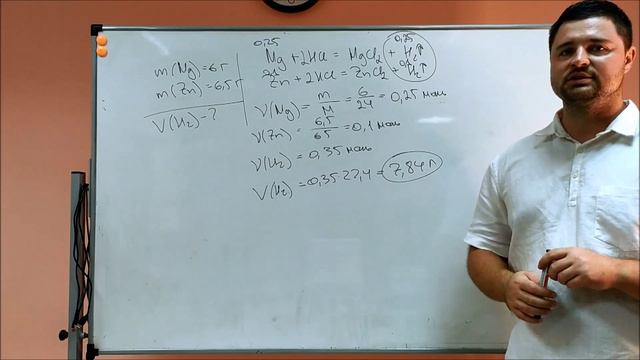 m(Mg)=6г
m(Zn)=6,5г
V(H₂)-?
0,25 0,25
Mg + 2HCl = MgCl₂ + H₂↑
Zn + 2HCl = ZnCl₂ + H₂↑
ν(Mg) = m/M = 6/24 = 0,25 моль
ν(Zn) = 6,5/65 = 0,1 моль
ν(H₂) = 0,35 моль
V(H₂) = 0,35 22,4 = 7,84 л